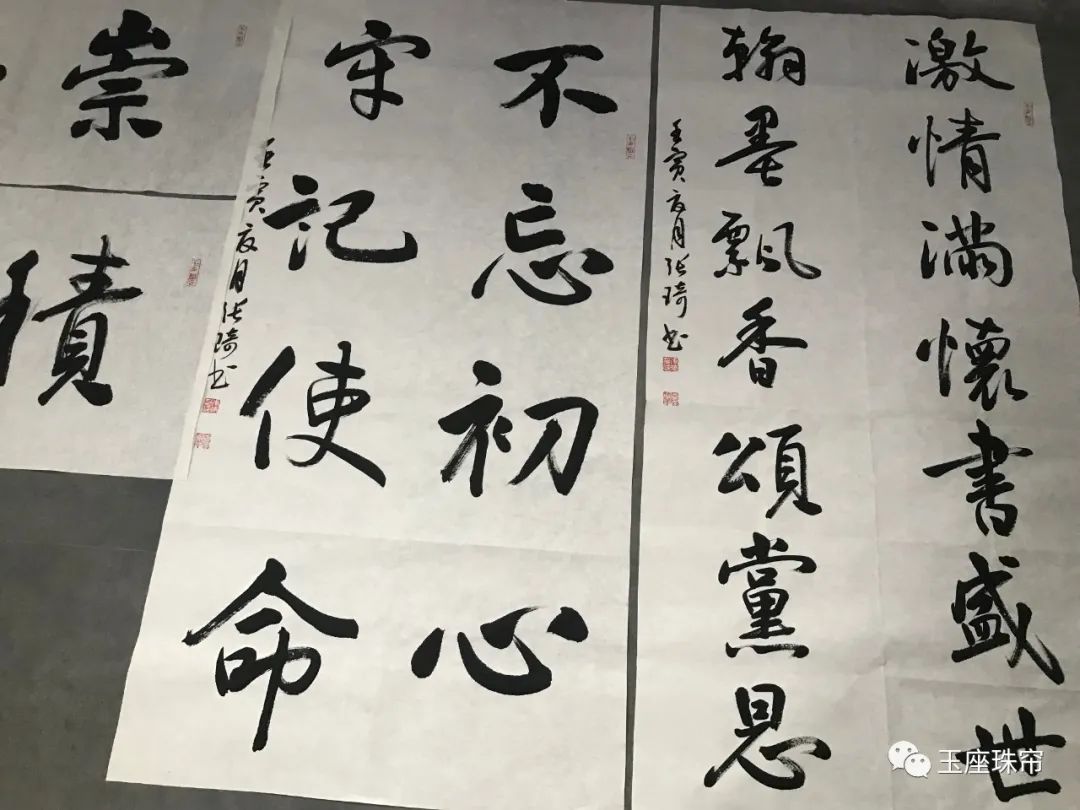 激情滿懷書盛世
翰墨飄香頌黨恩
壬寅夏月张琦书
不忘初心
牢记使命
壬寅夏月张琦书
崇
積
玉座珠帘